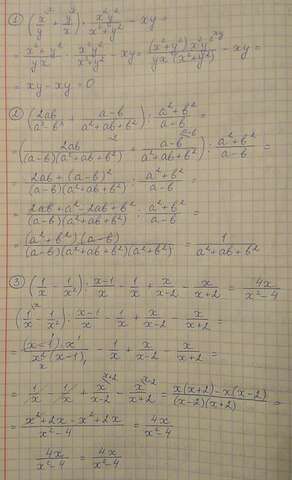 1) (x/y + y/x) · x²y²/(x²+y²) - xy =
= (x²+y²)/yx · x²y²/(x²+y²) - xy = (x²+y²)x²y²/yx(x²+y²) - xy =
= xy - xy = 0
2) (2ab/(a³-b³) + (a-b)/(a²+ab+b²)) : (a²+b²)/(a-b) =
= (2ab/(a-b)(a²+ab+b²) + (a-b)/(a²+ab+b²)) : (a²+b²)/(a-b) =
= (2ab+(a-b)²)/(a-b)(a²+ab+b²) : (a²+b²)/(a-b) =
= (2ab+a²-2ab+b²)/(a-b)(a²+ab+b²) : (a²+b²)/(a-b) =
= (a²+b²)(a-b)/(a-b)(a²+ab+b²)(a²+b²) = 1/(a²+ab+b²)
3) (1/x - 1/x²) : (x-1)/x - 1/x + x/(x-2) - x/(x+2) = 4x/(x²-4)
(1/x - 1/x²) : (x-1)/x - 1/x + x/(x-2) - x/(x+2) =
= (x-1)·x/x²(x-1) - 1/x + x/(x-2) - x/(x+2) =
= 1/x - 1/x + x/(x-2) - x/(x+2) = (x(x+2)-x(x-2))/(x-2)(x+2) =
= (x²+2x-x²+2x)/(x²-4) = 4x/(x²-4)
4x/(x²-4) = 4x/(x²-4)